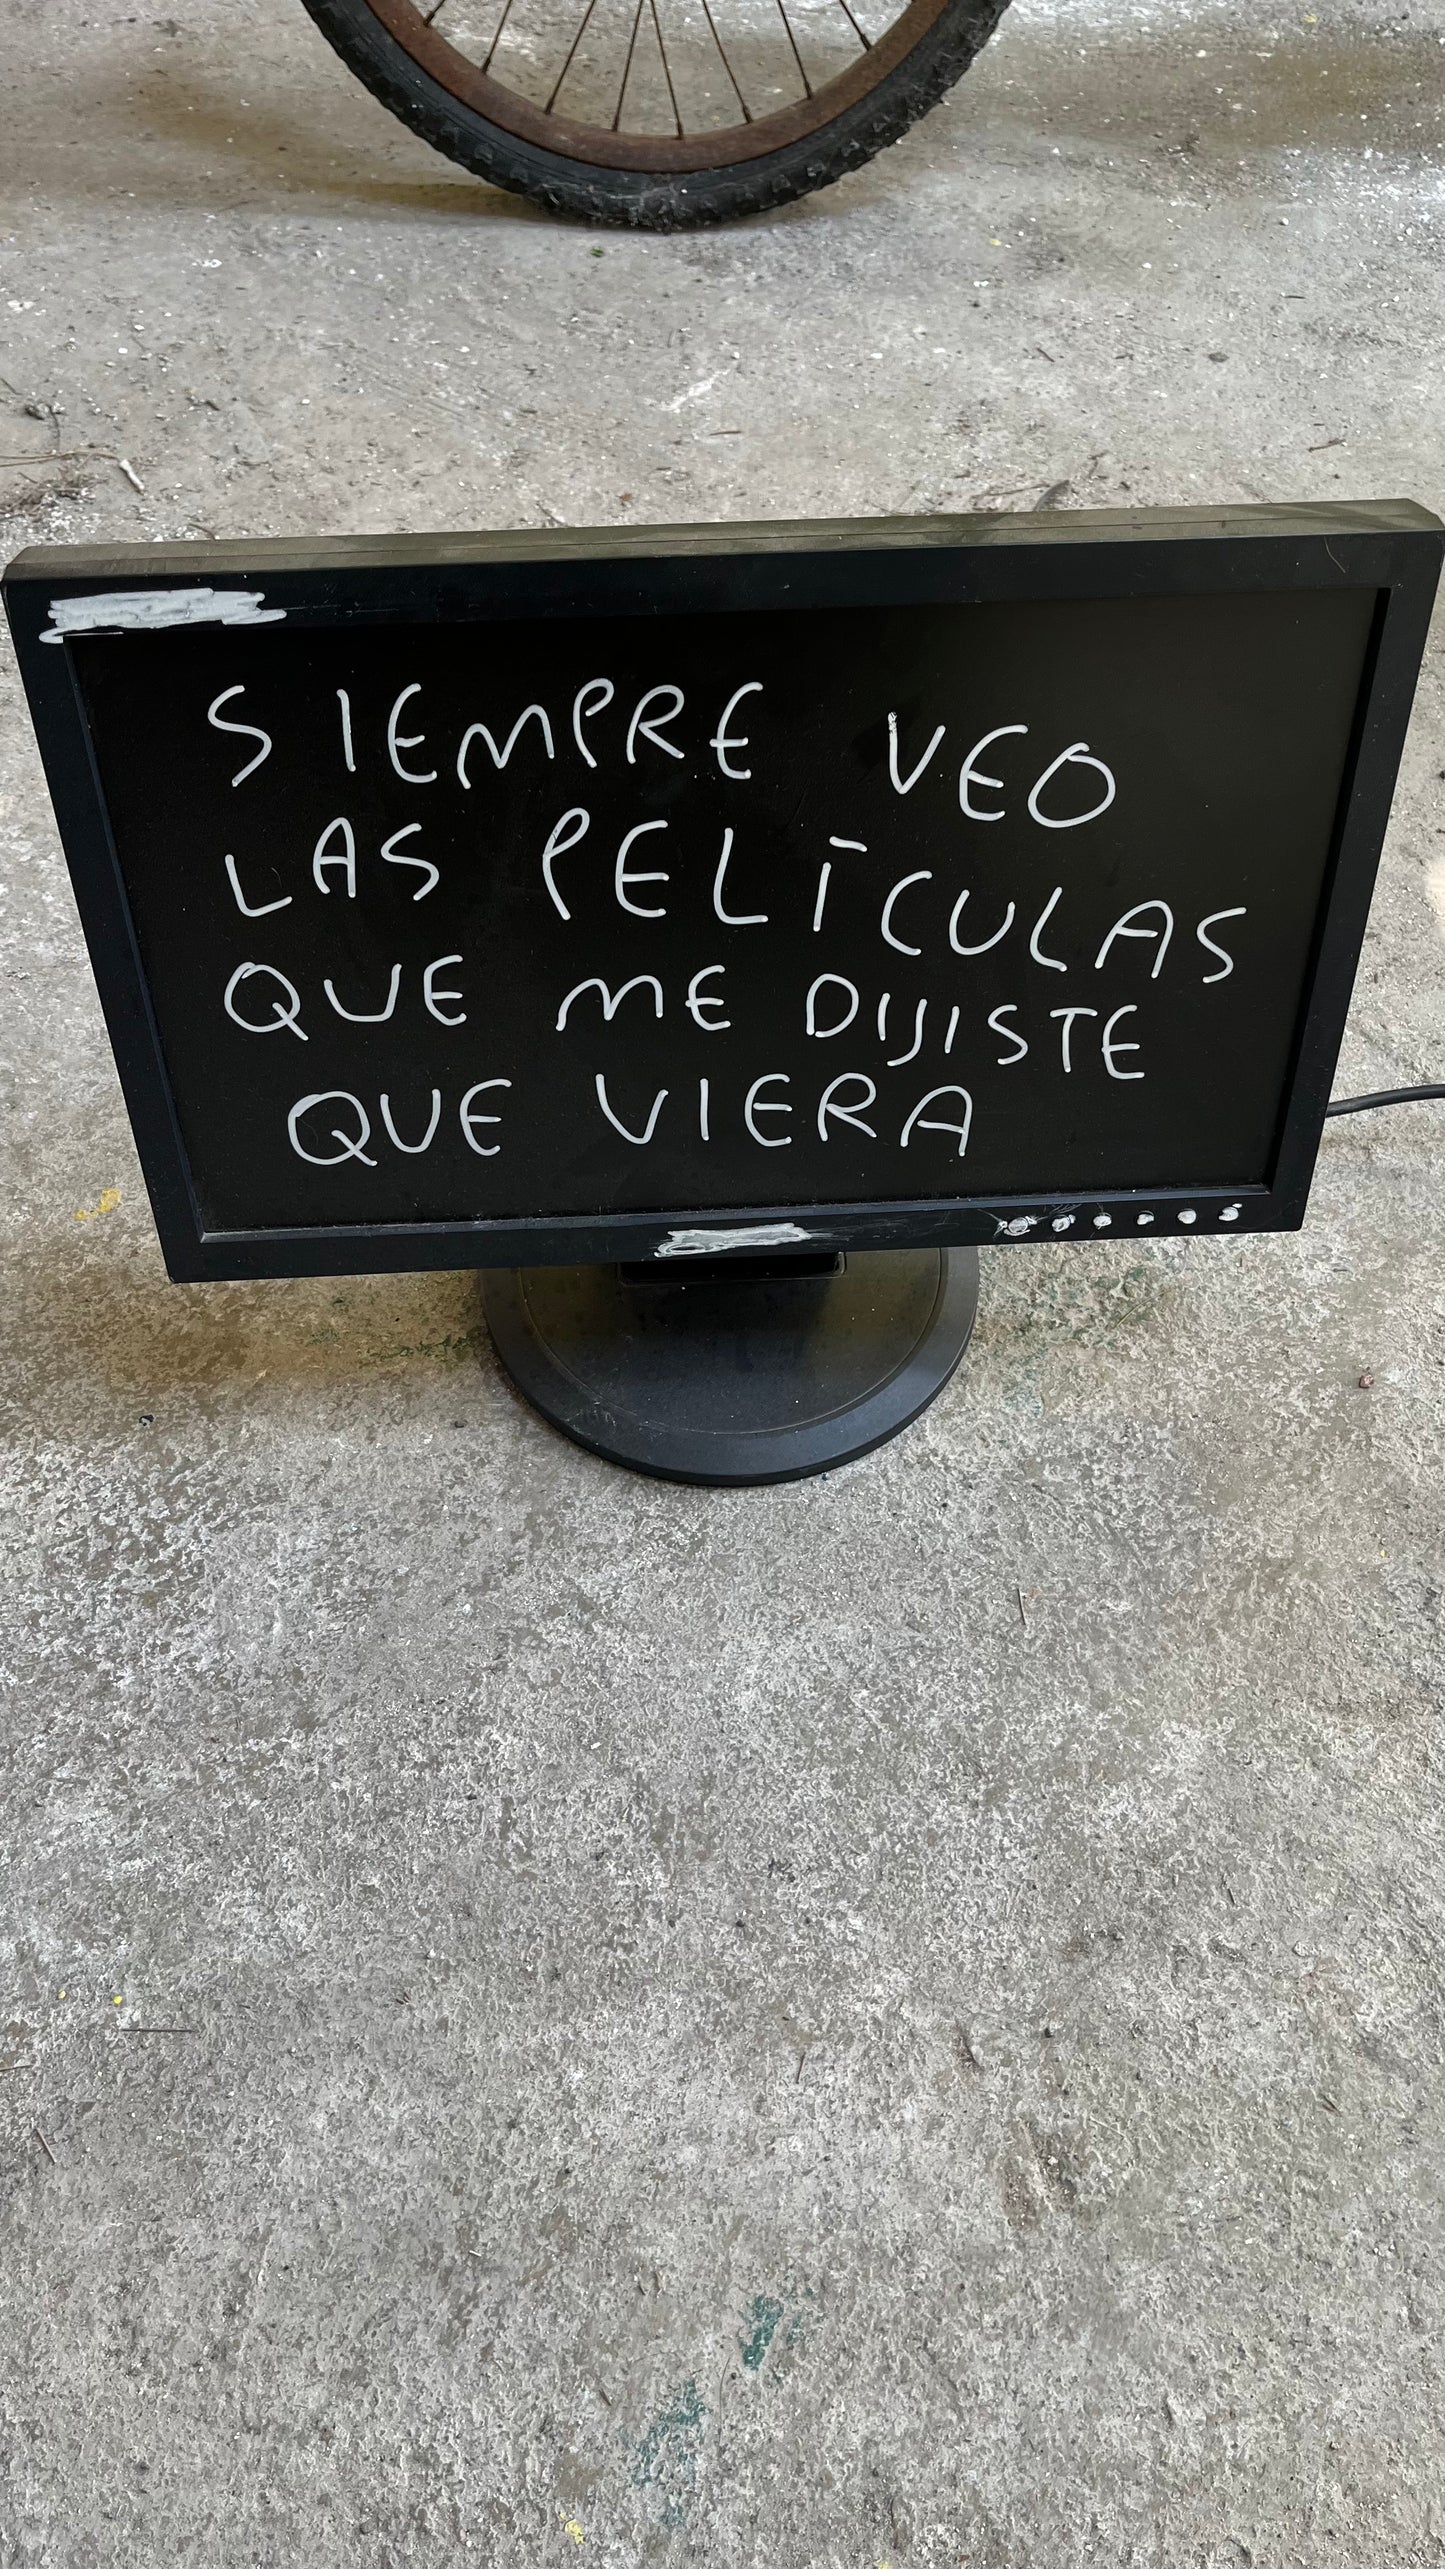 SIEMPRE VEO
LAS PELÍCULAS
QUE ME DIJISTE
QUE VIERA